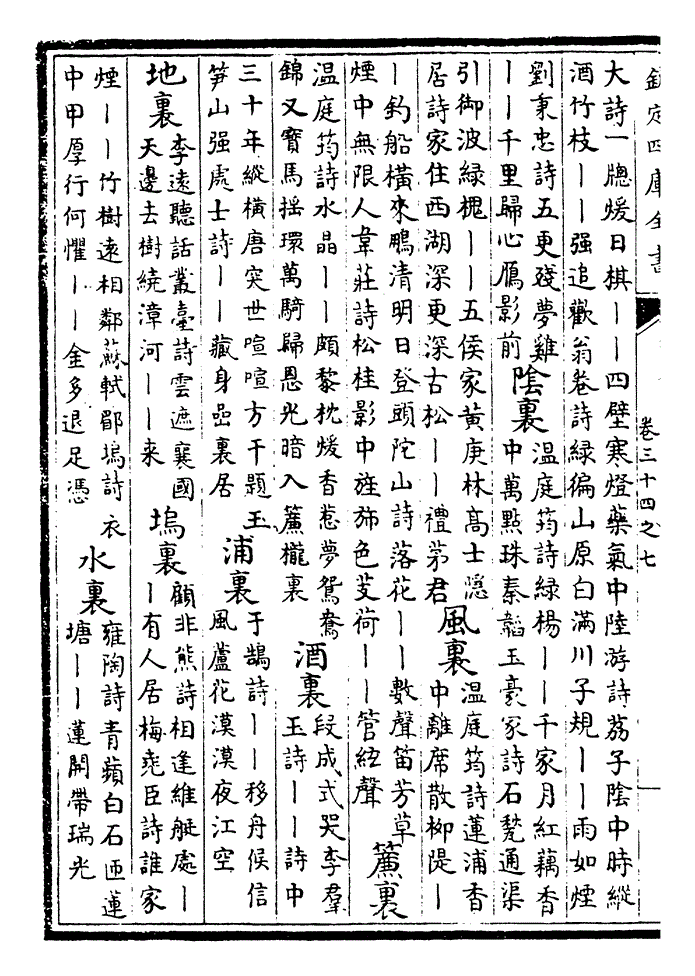 欽定四庫全書
卷三十四之七
大詩一牕煖日棋丨丨四壁寒燈藥氣中陸游詩荔子陰中時縱
酒竹枝丨丨强追歡翁卷詩綠徧山原白滿川子規丨丨雨如煙
劉秉忠詩五更殘夢雞
丨丨千里歸心鴈影前
陰裏
溫庭筠詩綠楊丨丨千家月紅藕香
中萬點珠秦韜玉豪家詩石甃通渠
引御波綠槐丨丨五侯家黃庚林髙士隠
居詩家住西湖深更深古松丨丨禮茅君
風裏
溫庭筠詩蓮浦香
中離席散柳隄丨
丨釣船橫來鵬清明日登頭陀山詩落花丨丨數聲笛芳草
煙中無限人韋莊詩松桂影中旌斾色芰荷丨丨管絃聲
簾裏
溫庭筠詩水晶丨丨頗黎枕煖香惹夢鴛鴦
錦又寳馬搖環萬騎歸恩光暗入簾櫳裏
酒裏
段成式哭李羣
玉詩丨丨詩中
三十年縱橫唐突世喧喧方干題玉
笋山强處士詩丨丨藏身嵒裏居
浦裏
于鵠詩丨丨移舟候信
風蘆花漠漠夜江空
地裏
李遠聽話叢臺詩雲遮襄國
天邊去樹繞漳河丨丨来
塢裏
顧非熊詩相逢維艇處丨
丨有人居梅堯臣詩誰家
煙丨丨竹樹遠相鄰蘇軾郿塢詩衣
中甲厚行何懼丨丨金多退足憑
水裏
雍陶詩青蘋白石匝蓮
塘丨丨蓮開帶瑞光